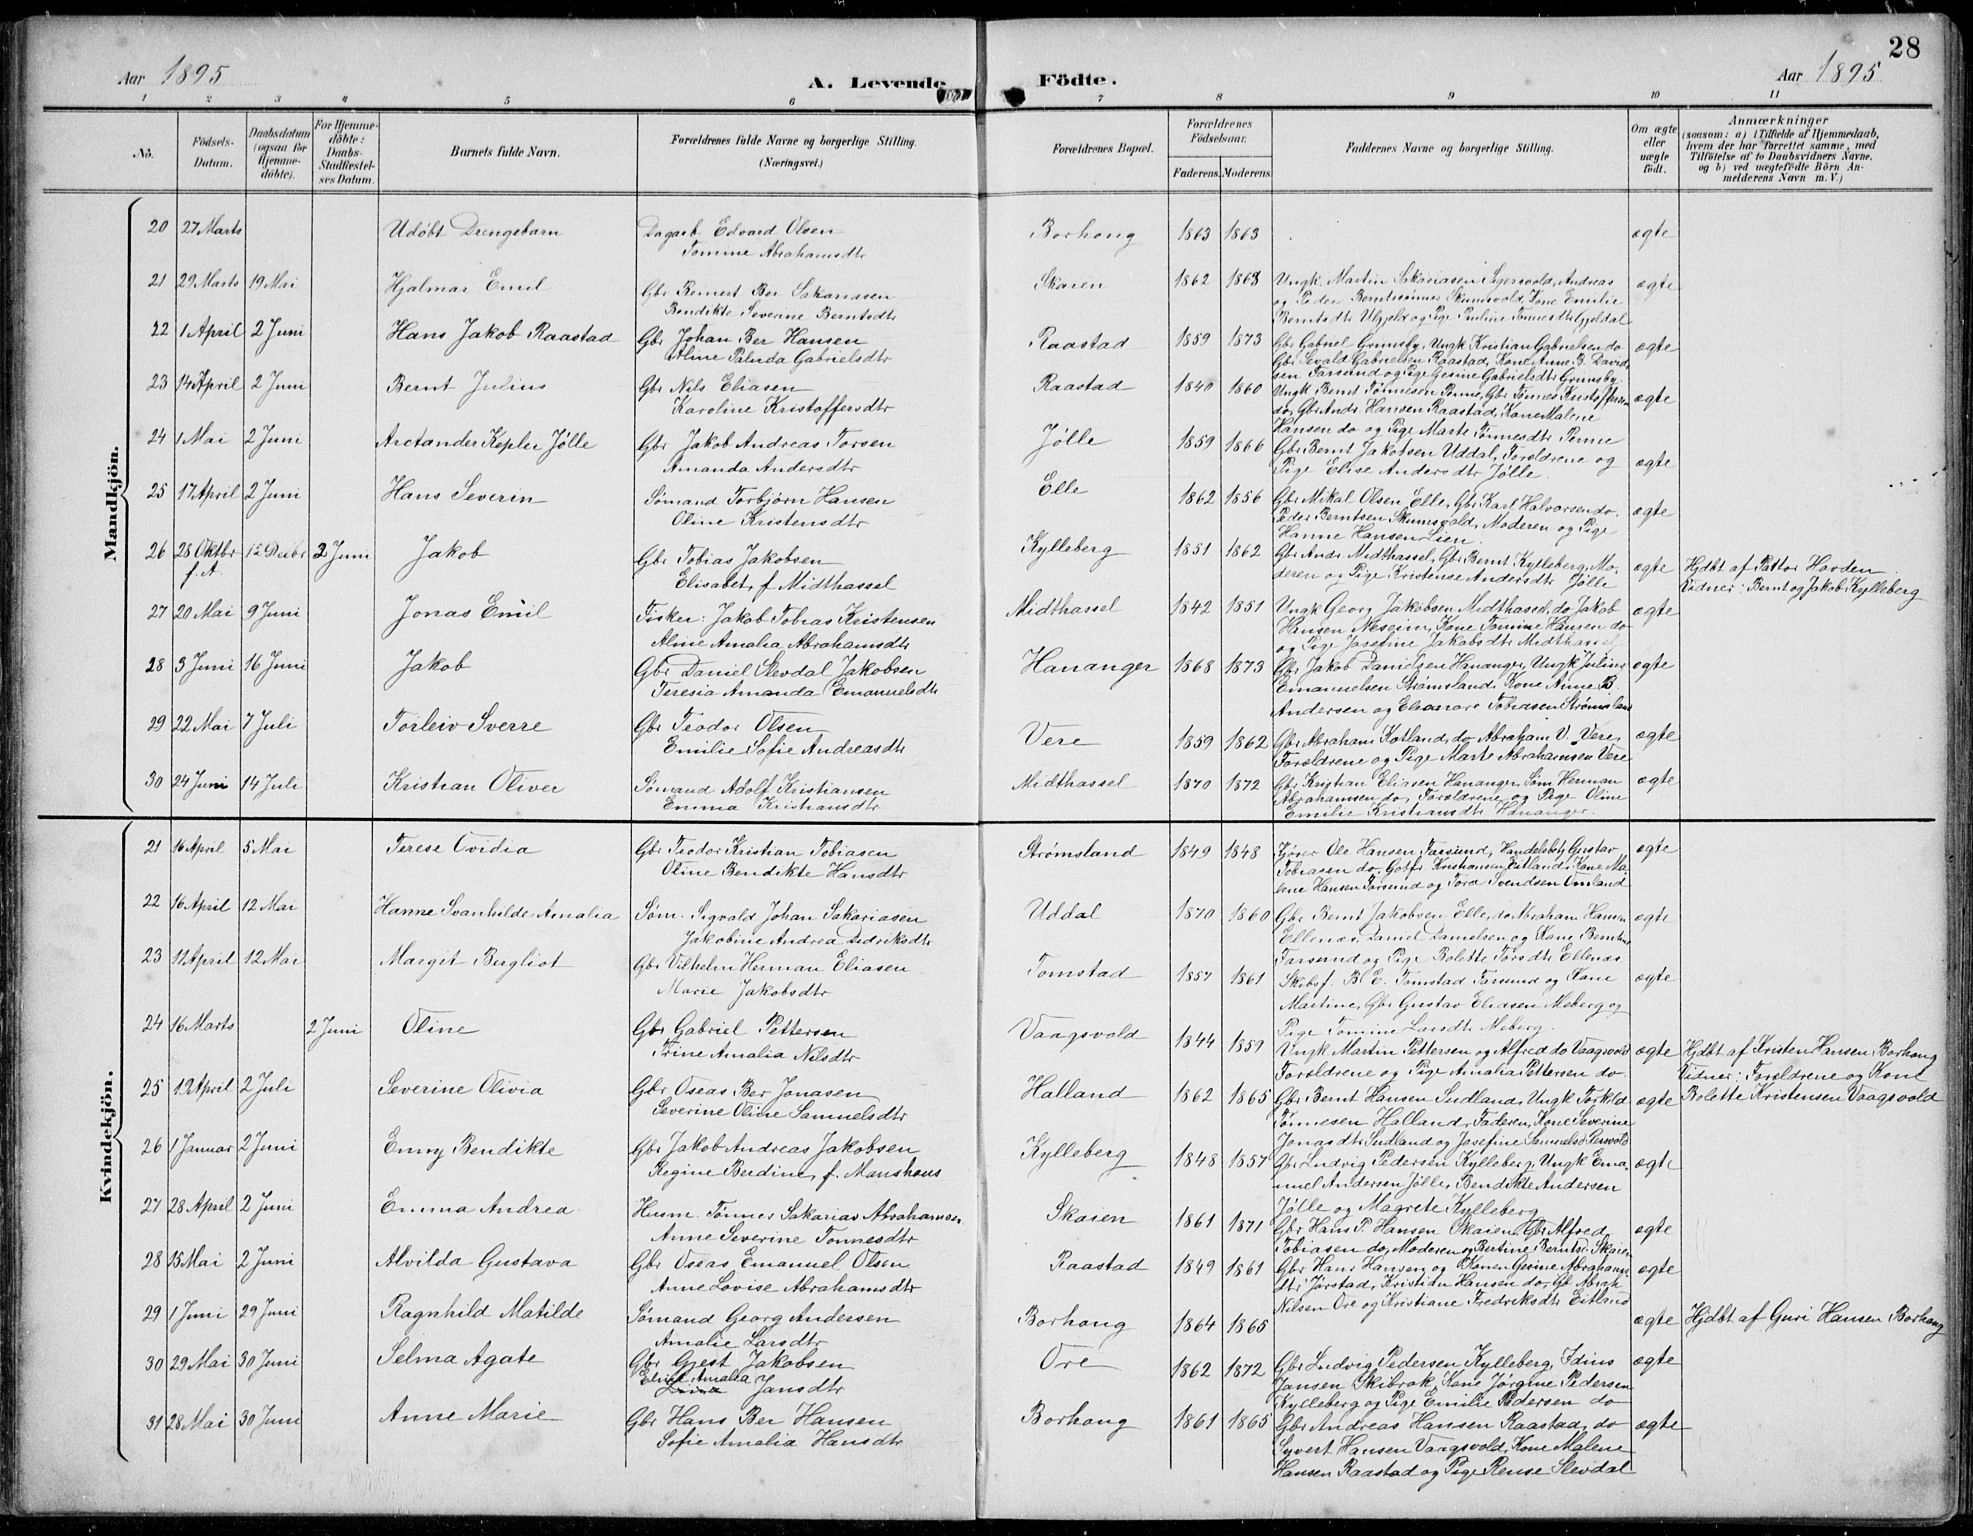 28
Aar 1895
A. Levende
Födte.
Aar 1895
1 2 3 4 5 6 7 8 9 10 11
No.
Födsels-Datum.
Daabsdatum (ogsaa for Hjemme-döbte).
For Hjemme-döbte: Daabs-Stadfæstel-ses Datum.
Barnets fulde Navn.
Forældrenes fulde Navne og borgerlige Stilling. (Næringsvei.)
Forældrenes Bopæl.
Forældrenes Födselsaar.
Faderens. Moderens.
Faddernes Navne og borgerlige Stilling.
Om ægte eller uægte født.
Anmærkninger
(saasom: a) i Tilfælde af Hjemmedaab, hvem der har forrettet samme, med Tilföielse af to Daabsvidners Navne, og b) ved uægtefödte Börn An-melderens Navn m. V.)
Mandkjön.
20 27 Marts Udøbt Drengebarn Dagarb. Edvard Olsen Borhaug 1863 1863 ægte
Tomine Abrahamsdtr
21 29 Marts 19 Mai Hjalmar Emil Gbr Bernert Ber Sakariasen Skaien 1862 1868 Ungk. Martin Sakariasen Andreas ægte
Bendikte Severine Berntsdtr og Peder Berntsønner Skumsvold, Kone Emilie
Berntsdtr og Pige Pauline Tønnesdtr Gjeldal
22 1 April 2 Juni Hans Jakob Raastad Gbr Johan Ber Hansen Raastad 1859 1873 Gbr Gabriel Grunsby, Ungk Kristian Gabrielsen do ægte
Aline Palnda Gabrielsdtr Gbr Sevald Gabrielsen Raastad, Kone Anne B. David-
sen Farsund og Pige Gesine Gabrielsdtr Grunsby.
23 14 April 2 Juni Bernt Julius Gbr Nils Eliasen Raastad 1840 1860 Ungk Bernt Tønnesen Penne, Gbr Tønnes Kristoffersen ægte
Karoline Kristoffersdtr do, Gbr Andr Hansen Raastad, Kone Malene
Hansen do og Pige Marte Tønnesdtr Penne
24 1 Mai 2 Juni Arctander Kepler Jølle Gbr Jakob Andreas Torsen Jølle 1859 1866 Gbr Bernt Jakobsen Uddal, Forældrene og ægte
Amanda Andersdtr Pige Elise Andersdtr Jølle.
25 17 April 2 Juni Hans Severin Sømand Torbjørn Hansen Elle 1862 1856 Gbr Mikal Olsen Elle, Gbr Karl Halvorsen do, ægte
Oline Kristensdtr Peder Berntsen Skumsvold, Moderen og Pige
Hanne Hansen Lien.
26 28 Oktbr f. A. 12 Decbr 2 Juni Jakob Gbr Tobias Jakobsen Kylleberg 1851 1862 Gbr Andr Midthassel, Gbr Bernt Kylleberg, Mo- ægte Hjdbt af Pastor Horden
Elisabet f Midthassel deren og Pige Kristense Andersdtr Jølle Vidner: Bernt og Jakob Kylleberg
27 20 Mai 9 Juni Jonas Emil Fisker: Jakob Tobias Kristensen Midthassel 1842 1851 Ungk Georg Jakobsen Midthassel, do Jakob ægte
Aline Amalia Abrahamsdtr Hansen Neseim, Kone Tomine Hansen do
og Pige Josefine Jakobsdtr Midthassel
28 3 Juni 16 Juni Jakob Gbr Daniel Slevdal Jakobsen Hananger 1868 1873 Gbr Jakob Danielsen Hananger, Ungk Julius ægte
Teresia Amanda Emanuelsdtr Emanuelsen Strømsland, Kone Anne B.
Andersen og Eleonore Tobiasen Strømsland
29 22 Mai 7 Juli Torleiv Sverre Gbr Teodor Olsen Vere 1859 1862 Gbr Abraham Kotland, do Abraham V. Vere, ægte
Emilie Sofie Andreasdtr Forældrene og Pige Marte Abrahamsen Vere
30 24 Juni 14 Juli Kristian Oliver Sømand Adolf Kristiansen Midthassel 1870 1872 Gbr Kristian Eliasen Hananger, Søm Herman ægte
Emma Kristiansdtr Abrahamsen do, Forældrene og Pige Oline
Emilie Kristiansdtr Hananger.
Kvindekjön.
21 16 April 5 Mai Terese Ovidia Gbr Teodor Kristian Tobiasen Strømsland 1849 1848 Ole Hansen Farsund, Handelsbetj Gustav ægte
Oline Bendikte Hansdtr Tobiasen do, Kristiansen Jutland, Kone Ma-
lene Hansen Farsund og Tord Svendsen Omland
22 16 April 12 Mai Hanne Svanhilde Amalia Søm. Sigvald Johan Sakariasen Uddal 1870 1860 Gbr Bernt Jakobsen Elle, do Abraham Hansen ægte
Jakobine Andrea Didriksdtr Ellenæs, Daniel Danielsen og Kone Berntine
Farsund og Pige Bolette Torsdtr Ellenæs
23 11 April 12 Mai Margit Bergliot Gbr Vilhelm Herman Eliasen Tomstad 1857 1861 Skibsf. B E. Tomstad Farsund og Kone ægte
Marie Jakobsdtr Martine, Gbr Gustav Eliasen Meberg og
Pige Tomine Larsdtr Meberg.
24 16 Marts 2 Juni Oline Gbr Gabriel Pettersen Vaagsvold 1844 1859 Ungk Martin Pettersen og Alfred do Vaagsvold ægte Hjdbt af Kristen Hansen Borhaug
Trine Amalia Nilsdtr Forældrene og Pige Amalia Pettersen do. Vidner: Forældrene og Kone
25 12 April 2 Juli Severine Olivia Gbr Oseas Ber Jonasen Halland 1862 1865 Gbr Bernt Hansen Sudland, Ungk Torkild ægte Bolette Kristensen Vaagsvold
Severine Oline Samuelsdtr Tønnesen Halland, Faderen, Kone Severine
Jonasdtr Sudland og Josefine Samuelsd
26 1 Januar 2 Juni Enny Bendikte Gbr Jakob Andreas Jakobsen Kylleberg 1848 1857 Gbr Ludvig Pedersen Kylleberg, Ungk Ema- ægte
Regine Berdine, f. Maushaus nuel Andersen Jølle, Bendikte Andersen
Jølle og Magrete Kylleberg
27 28 April 2 Juni Emma Andrea Husm. Tønnes Sakarias Abrahamsen Skaien 1861 1871 Gbr Hans P. Hansen Skaien, Gbr Alfred ægte
Anne Severine Tonnesdtr Tobiasen do, Moderen og Bertine Berntsd. Skaien
28 15 Mai 2 Juni Alvilda Gustava Gbr Oseas Emanuel Olsen Raastad 1849 1861 Gbr Hans Hansen og Konen Gesine Abrahams- ægte
Anne Lovise Abrahamsdtr dtr Jørstad, Kristian Hansen do, Gbr Abrah
Nilsen Ore og Kristiane Fredriksdtr Eitland
29 1 Juni 29 Juni Ragnhild Matilde Sømand Georg Andersen Borhaug 1864 1865 ægte Hjdbt af Guri Hansen Borhaug
Amalie Larsdtr
30 29 Mai 30 Juni Selma Agate Gbr Gjest Jakobsen Ore 1862 1872 Gbr Ludvig Pedersen Kylleberg, Idius ægte
Eline Amalia Jansdtr Jansen Skibrok, Kone Jørgine Pedersen
Kylleberg og Pige Emilie Pedersen do
31 28 Mai 30 Juni Anne Marie Gbr Hans Ber Hansen Borhaug 1861 1865 Gbr Andreas Hansen Raastad, do ægte
Sofie Amalia Hansdtr Syvert Hansen Vaagsvold, Kone Malene
Hansen Raastad og Pige Rense Slevdal